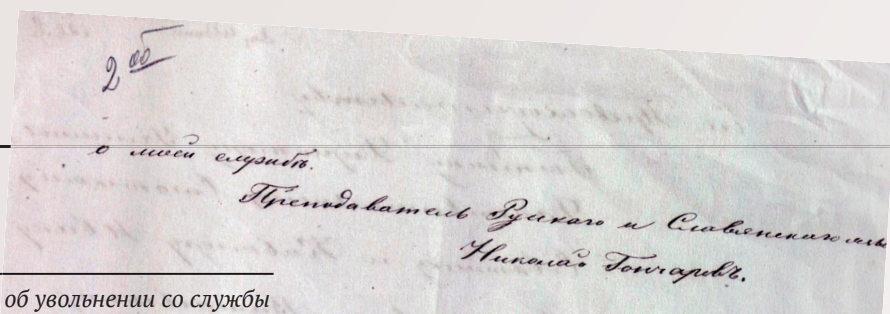 2 об
о моей службѣ.
Преподаватель Рускаго и Славянскаго язы
Николай Гончаровъ.
об увольнении со службы